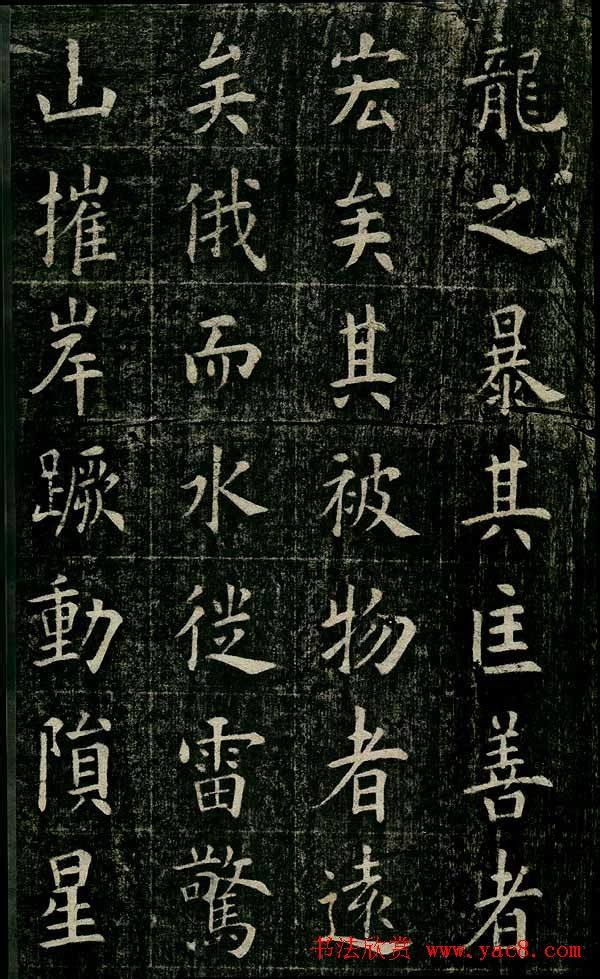 龍之暴其匡善者
宏矣其被物者遠
矣俄而水從雷驚
山摧岸蹶動隕星
书法欣赏 www.yac8.com